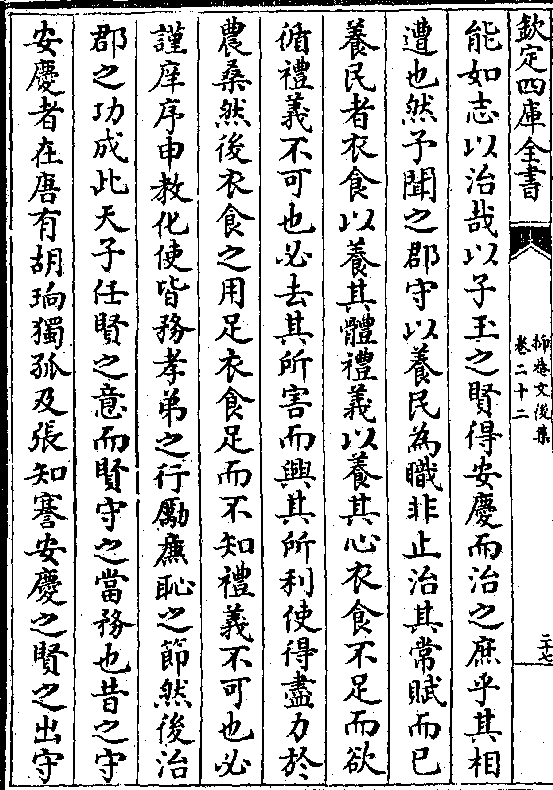 欽定四庫全書
抑菴文後集
卷二十二
二十七
能如志以治哉以子玉之賢得安慶而治之庶乎其相
遭也然予聞之郡守以養民為職非止治其常賦而已
養民者衣食以養其體禮義以養其心衣食不足而欲
循禮義不可也必去其所害而興其所利使得盡力於
農桑然後衣食之用足衣食足而不知禮義不可也必
謹庠序申教化使皆務孝弟之行勵廉恥之節然後治
郡之功成此天子任賢之意而賢守之當務也昔之守
安慶者在唐有胡珦獨孤及張知謇安慶之賢之出守